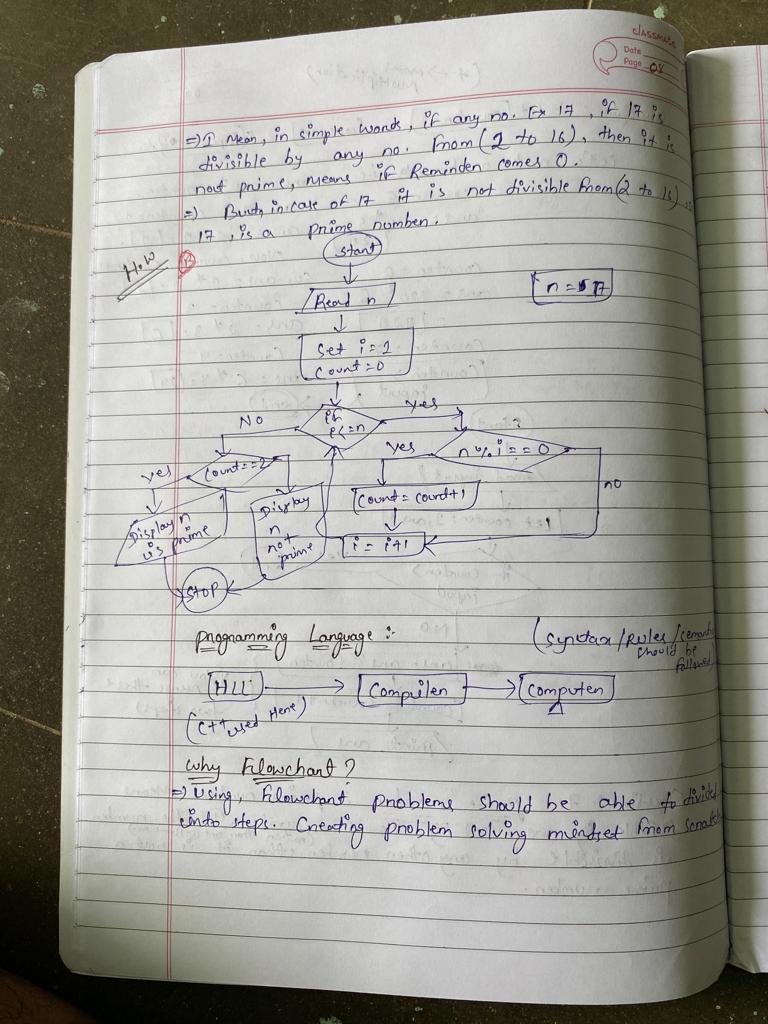 classmate
Date
Page 08
⇒ I mean, in simple words, if any no. Ex 17, if 17 is
divisible by any no. from (2 to 16), then it is
not prime, means if Reminder comes 0.
⇒ But, in case of 17 it is not divisible from (2 to 16)
17, is a prime number.
H.W
Start
Read n
n = 17
Set i = 1
Count = 0
if
i<=n
NO
yes
n % i == 0 ?
yes
no
Count==2
yes
Display n
is prime
Display
n
not
prime
Count = count+1
i = i+1
STOP
Programming Language :-
(Syntax/Rules/
should be
followed)
HLL → Compiler → Computer
(C++ used Here)
Why Flowchart?
⇒ Using, Flowchart problems should be able to divided
into steps. Creating problem solving mindset from